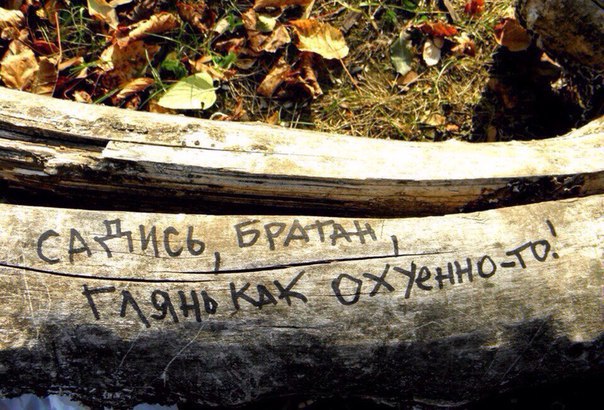 САДИСЬ, БРАТАН,
ГЛЯНЬ КАК ОХУЕННО-ТО!